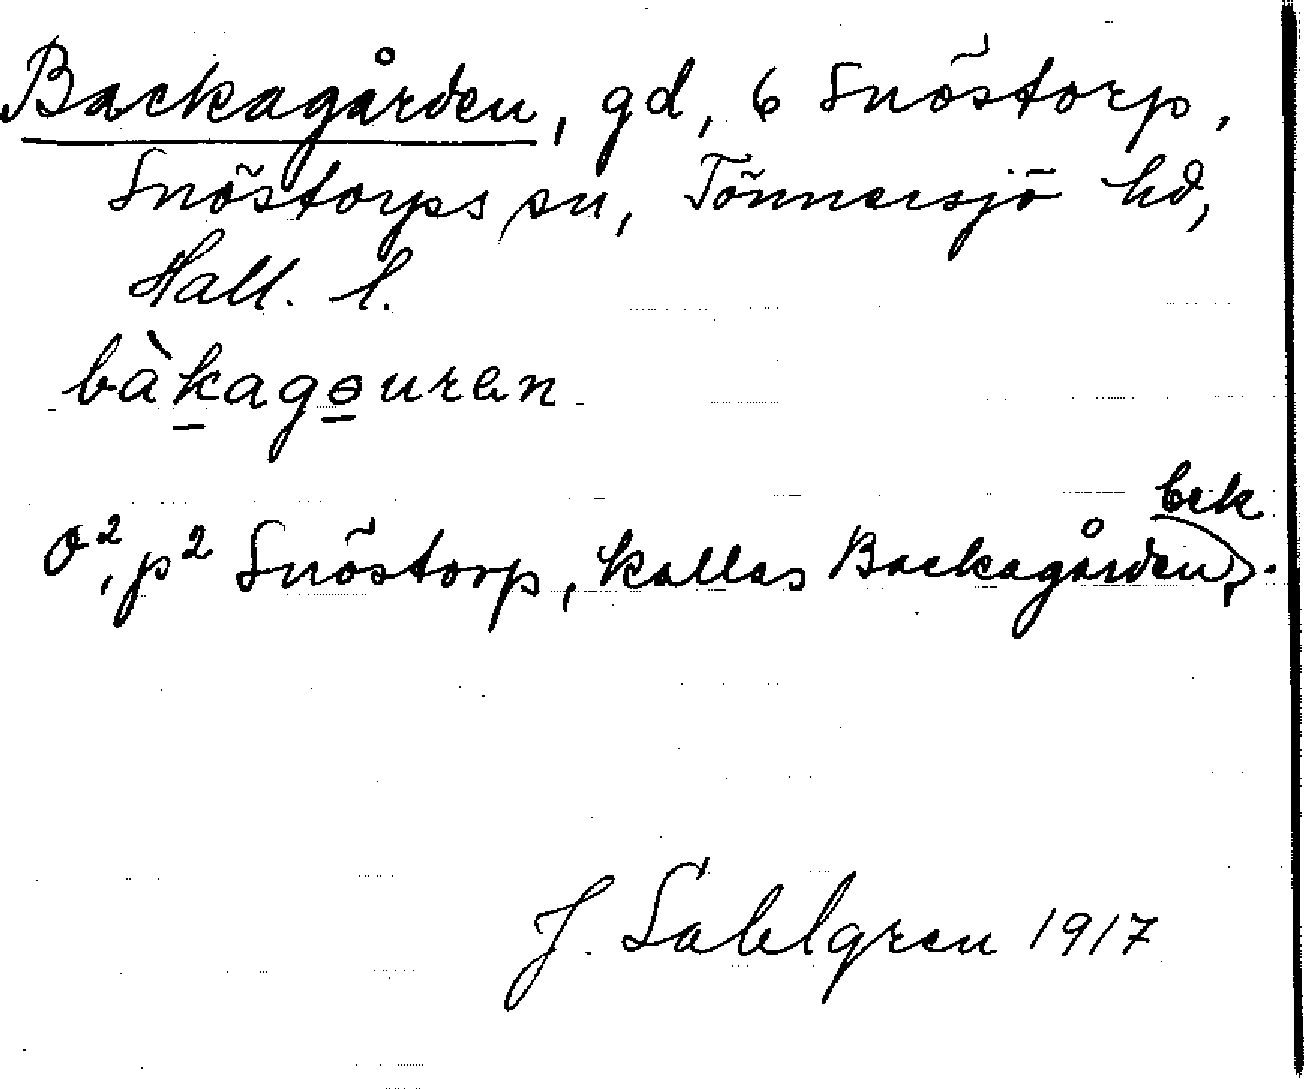 Backagården, gd, 6 Snöstorp,
Snöstorps sn, Tönnersjö hd,
Hall. l.
bàkagɵuren
O², p² Snöstorp, kallas Backagården, bek.
J. Sahlgren 1917